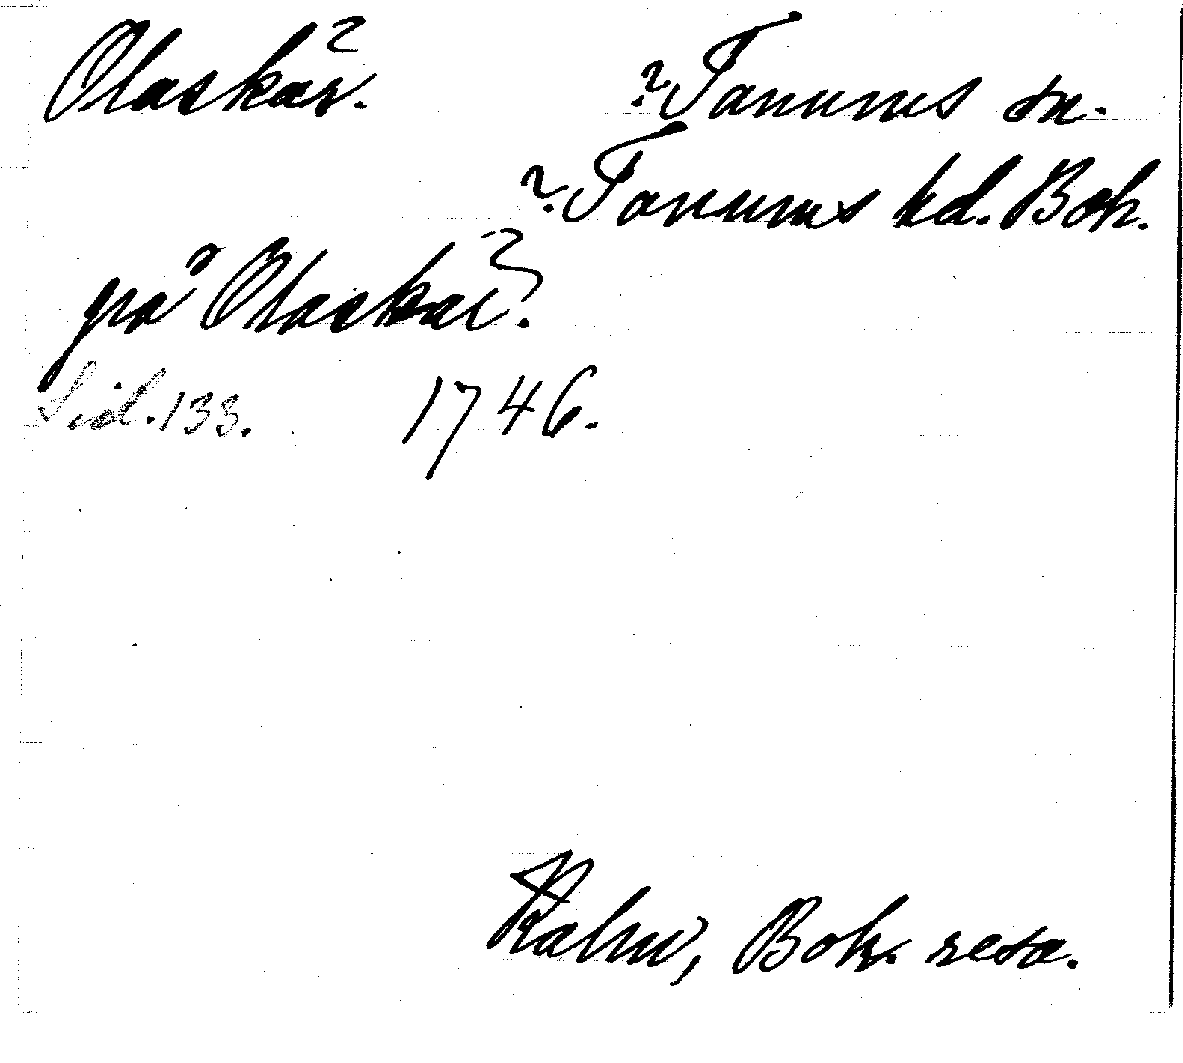 Olaskär. ? Tanums sn.
? Tanums hd. Boh.
på Olaskär.
Sid. 133. 1746.
Kalm, Boh. resa.